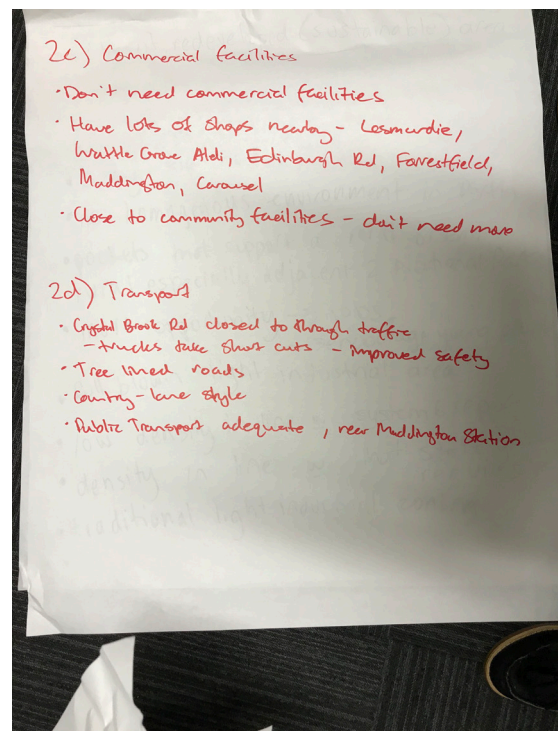 2c) Commercial facilities
• Don't need commercial facilities
• Have lots of shops nearby – Lesmurdie,
Wattle Grove Aldi, Edinburgh Rd, Forrestfield,
Maddington, Carousel
• Close to community facilities – don't need more
2d) Transport
• Crystal Brook Rd closed to through traffic
– trucks take short cuts – improved safety
• Tree lined roads
• Country-lane style
• Public Transport adequate, near Maddington Station
low density
density in line
traditional